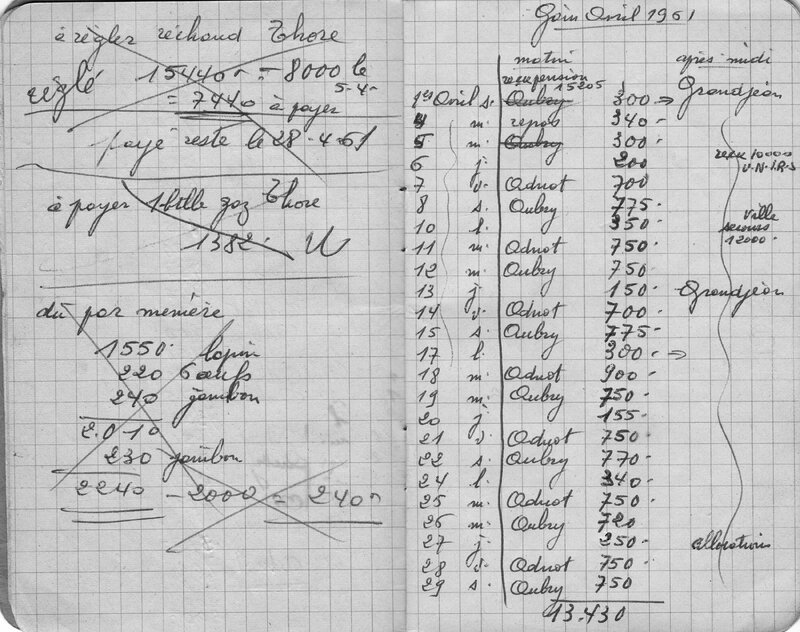 à régler réchaud Thore
15440 - 8000 le
réglé
5-4-
= 7440 à payer
payé reste le 28-4-61
à payer 1 btlle gaz Thore
1382-
dû par memère
1550- lapin
220 6 œufs
240 jambon
2.010
230 jambon
2240 - 2000 = 240
Gain Avril 1961
matin après midi
reçu pension
15205
1er Avril s. Aubry 300 → Grandjean
4 m. repos 340-
5 m. Aubry 300-
6 j. 200 reçu 10000
V.N.I.R.S
7 v. Adnot 700
8 s. Aubry 775-
10 l. 350 ville
secours
12000-
11 m. Adnot 750-
12 m. Aubry 750
13 j. 150- Grandjean
14 v. Adnot 700-
15 s. Aubry 775-
17 l. 300- →
18 m. Adnot 900
19 m. Aubry 750-
20 j. 155-
21 v. Adnot 750
22 s. Aubry 770
24 l. 340
25 m. Adnot 750-
26 m. Aubry 720
27 j. 250- allocations
28 v. Adnot 750-
29 s. Aubry 750
13.430